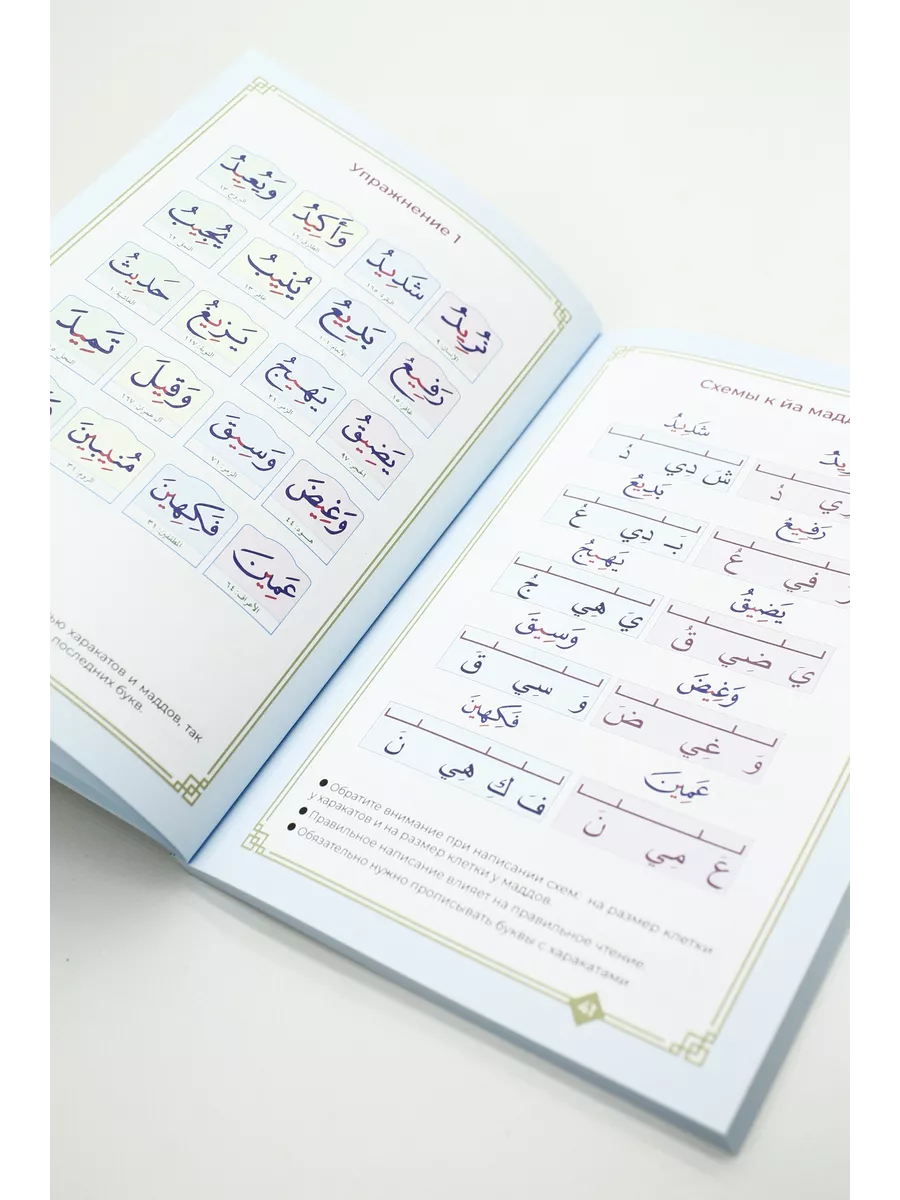 Упражнение 1
نُرِيدُ شَدِيدُ وَأَكِيدُ وَيُعِيدُ
الإنسان ٩ البقرة ١٦٥ الطارق ١٦ البروج ١٣
رَفِيعُ بَدِيعُ يُنِيبُ يُجِيبُ
غافر ١٥ الأنعام ١٠١ غافر ١٣ النمل ٦٢
يَضِيقُ يَهِيجُ يَزِيغُ حَدِيثُ
الحجر ٩٧ الزمر ٢١ التوبة ١١٧ الغاشية ١
وَغِيضَ وَسِيقَ وَقِيلَ تَمِيدَ
هود: ٤٤ الزمر ٧١ آل عمران ١٦٧
عَمِينَ فَكِهِينَ مُنِيبِينَ
الأعراف: ٦٤ المطففين: ٣١ الروم ٣١
ью харакатов и маддов, так
последних букв.
Схемы к йа мадд
شَدِيدُ
شَ دِي دُ
رِي دُ
رَفِيعُ بَدِيعُ
فِي عُ
بَـ دِي عُ
يَضِيقُ يَهِيجُ
يَ ضِي قُ
يَ هِي جُ
وَغِيضَ وَسِيقَ
وَ غِي ضَ
وَ سِي قَ
عَمِينَ فَكِهِينَ
عَ مِي نَ
فَ كِ هِي نَ
● Обратите внимание при написании схем: на размер клетки
у харакатов и на размер клетки у маддов.
● Правильное написание влияет на правильное чтение.
● Обязательно нужно прописывать буквы с харакатами